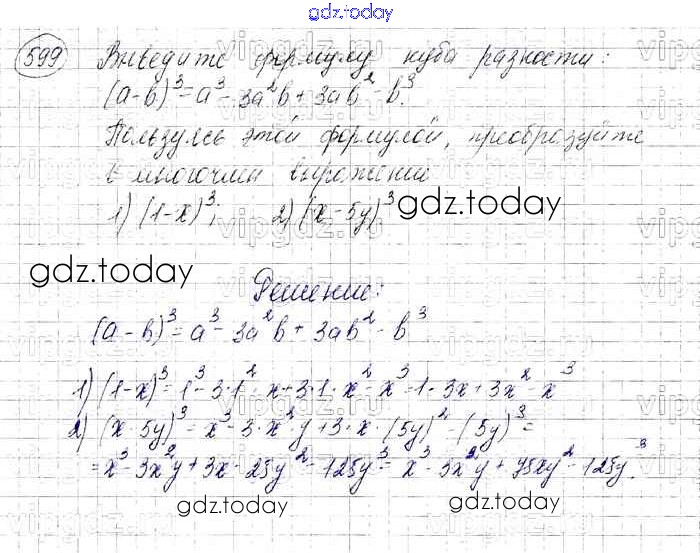 gdz.today
599 Выведите формулу куба разности:
(a-b)³=a³-3a²b+3ab²-b³.
Пользуясь этой формулой, преобразуйте
в многочлен выражение
1) (1-x)³; 2) (x-5y)³ gdz.today
gdz.today
Решение:
(a-b)³=a³-3a²b+3ab²-b³
1) (1-x)³=1³-3·1²·x+3·1·x²-x³=1-3x+3x²-x³
2) (x-5y)³=x³-3·x²y+3·x·(5y)²-(5y)³=
=x³-3x²y+3x·25y²-125y³=x³-3x²y+75xy²-125y³.
gdz.today gdz.today